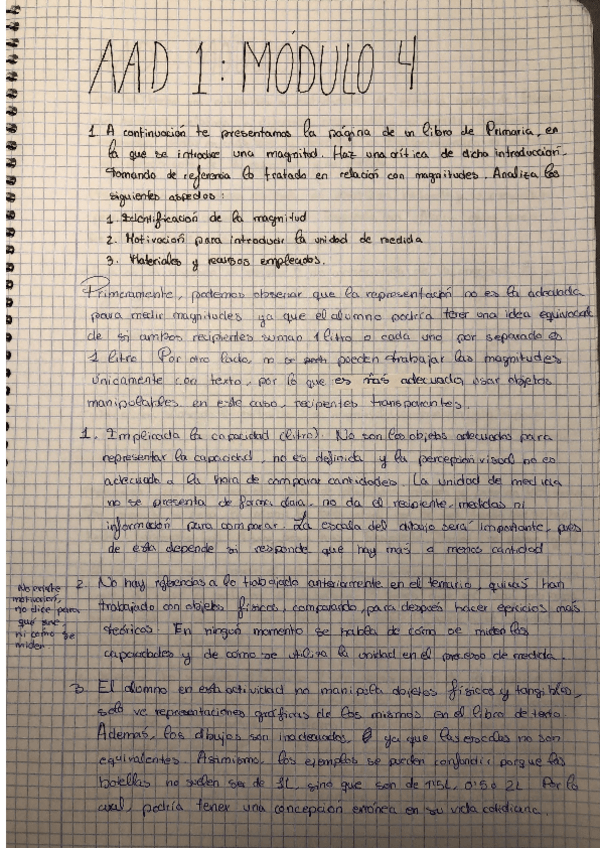 AAD 1: MÓDULO 4
1. A continuación te presentamos la página de un libro de Primaria, en
la que se introduce una magnitud. Haz una crítica de dicha introducción.
Tomando de referencia lo tratado en relación con magnitudes. Analiza los
siguientes aspectos:
1. Identificación de la magnitud
2. Motivación para introducir la unidad de medida
3. Materiales y recursos empleados.
Primeramente, podemos observar que la representación no es la adecuada
para medir magnitudes ya que el alumno podría tener una idea equivocada
de si ambos recipientes suman 1 litro o cada uno por separado es
1 litro. Por otro lado, no se pueden trabajar las magnitudes
únicamente con texto, por lo que es más adecuado usar objetos
manipulables, en este caso, recipientes transparentes.
1. Implicada la capacidad (litro). No son los objetos adecuados para
representar la capacidad, no es definida y la percepción visual no es
adecuada a la hora de comparar cantidades. La unidad de medida
no se presenta de forma clara, no da el recipiente, medidas ni
información para comparar. La escala del dibujo será importante, pues
de esta depende si responde que hay más o menos cantidad
2. No hay referencias a lo trabajado anteriormente en el temario, quizás han
trabajado con objetos físicos, comparando, para después hacer ejercicios más
teóricos. En ningún momento se habla de cómo se miden las
capacidades y de cómo se utiliza la unidad en el proceso de medida.
No existe
motivación,
no dice para
qué sirve
ni cómo se
miden
3. El alumno en esta actividad no manipula objetos físicos y tangibles,
solo ve representaciones gráficas de los mismos en el libro de texto.
Además, los dibujos son inadecuados, ya que las escalas no son
equivalentes. Asimismo, los ejemplos se pueden confundir porque las
botellas no suelen ser de 1L, sino que son de 1'5L, 0'5 o 2L. Por lo
cual, podría tener una concepción errónea en su vida cotidiana.